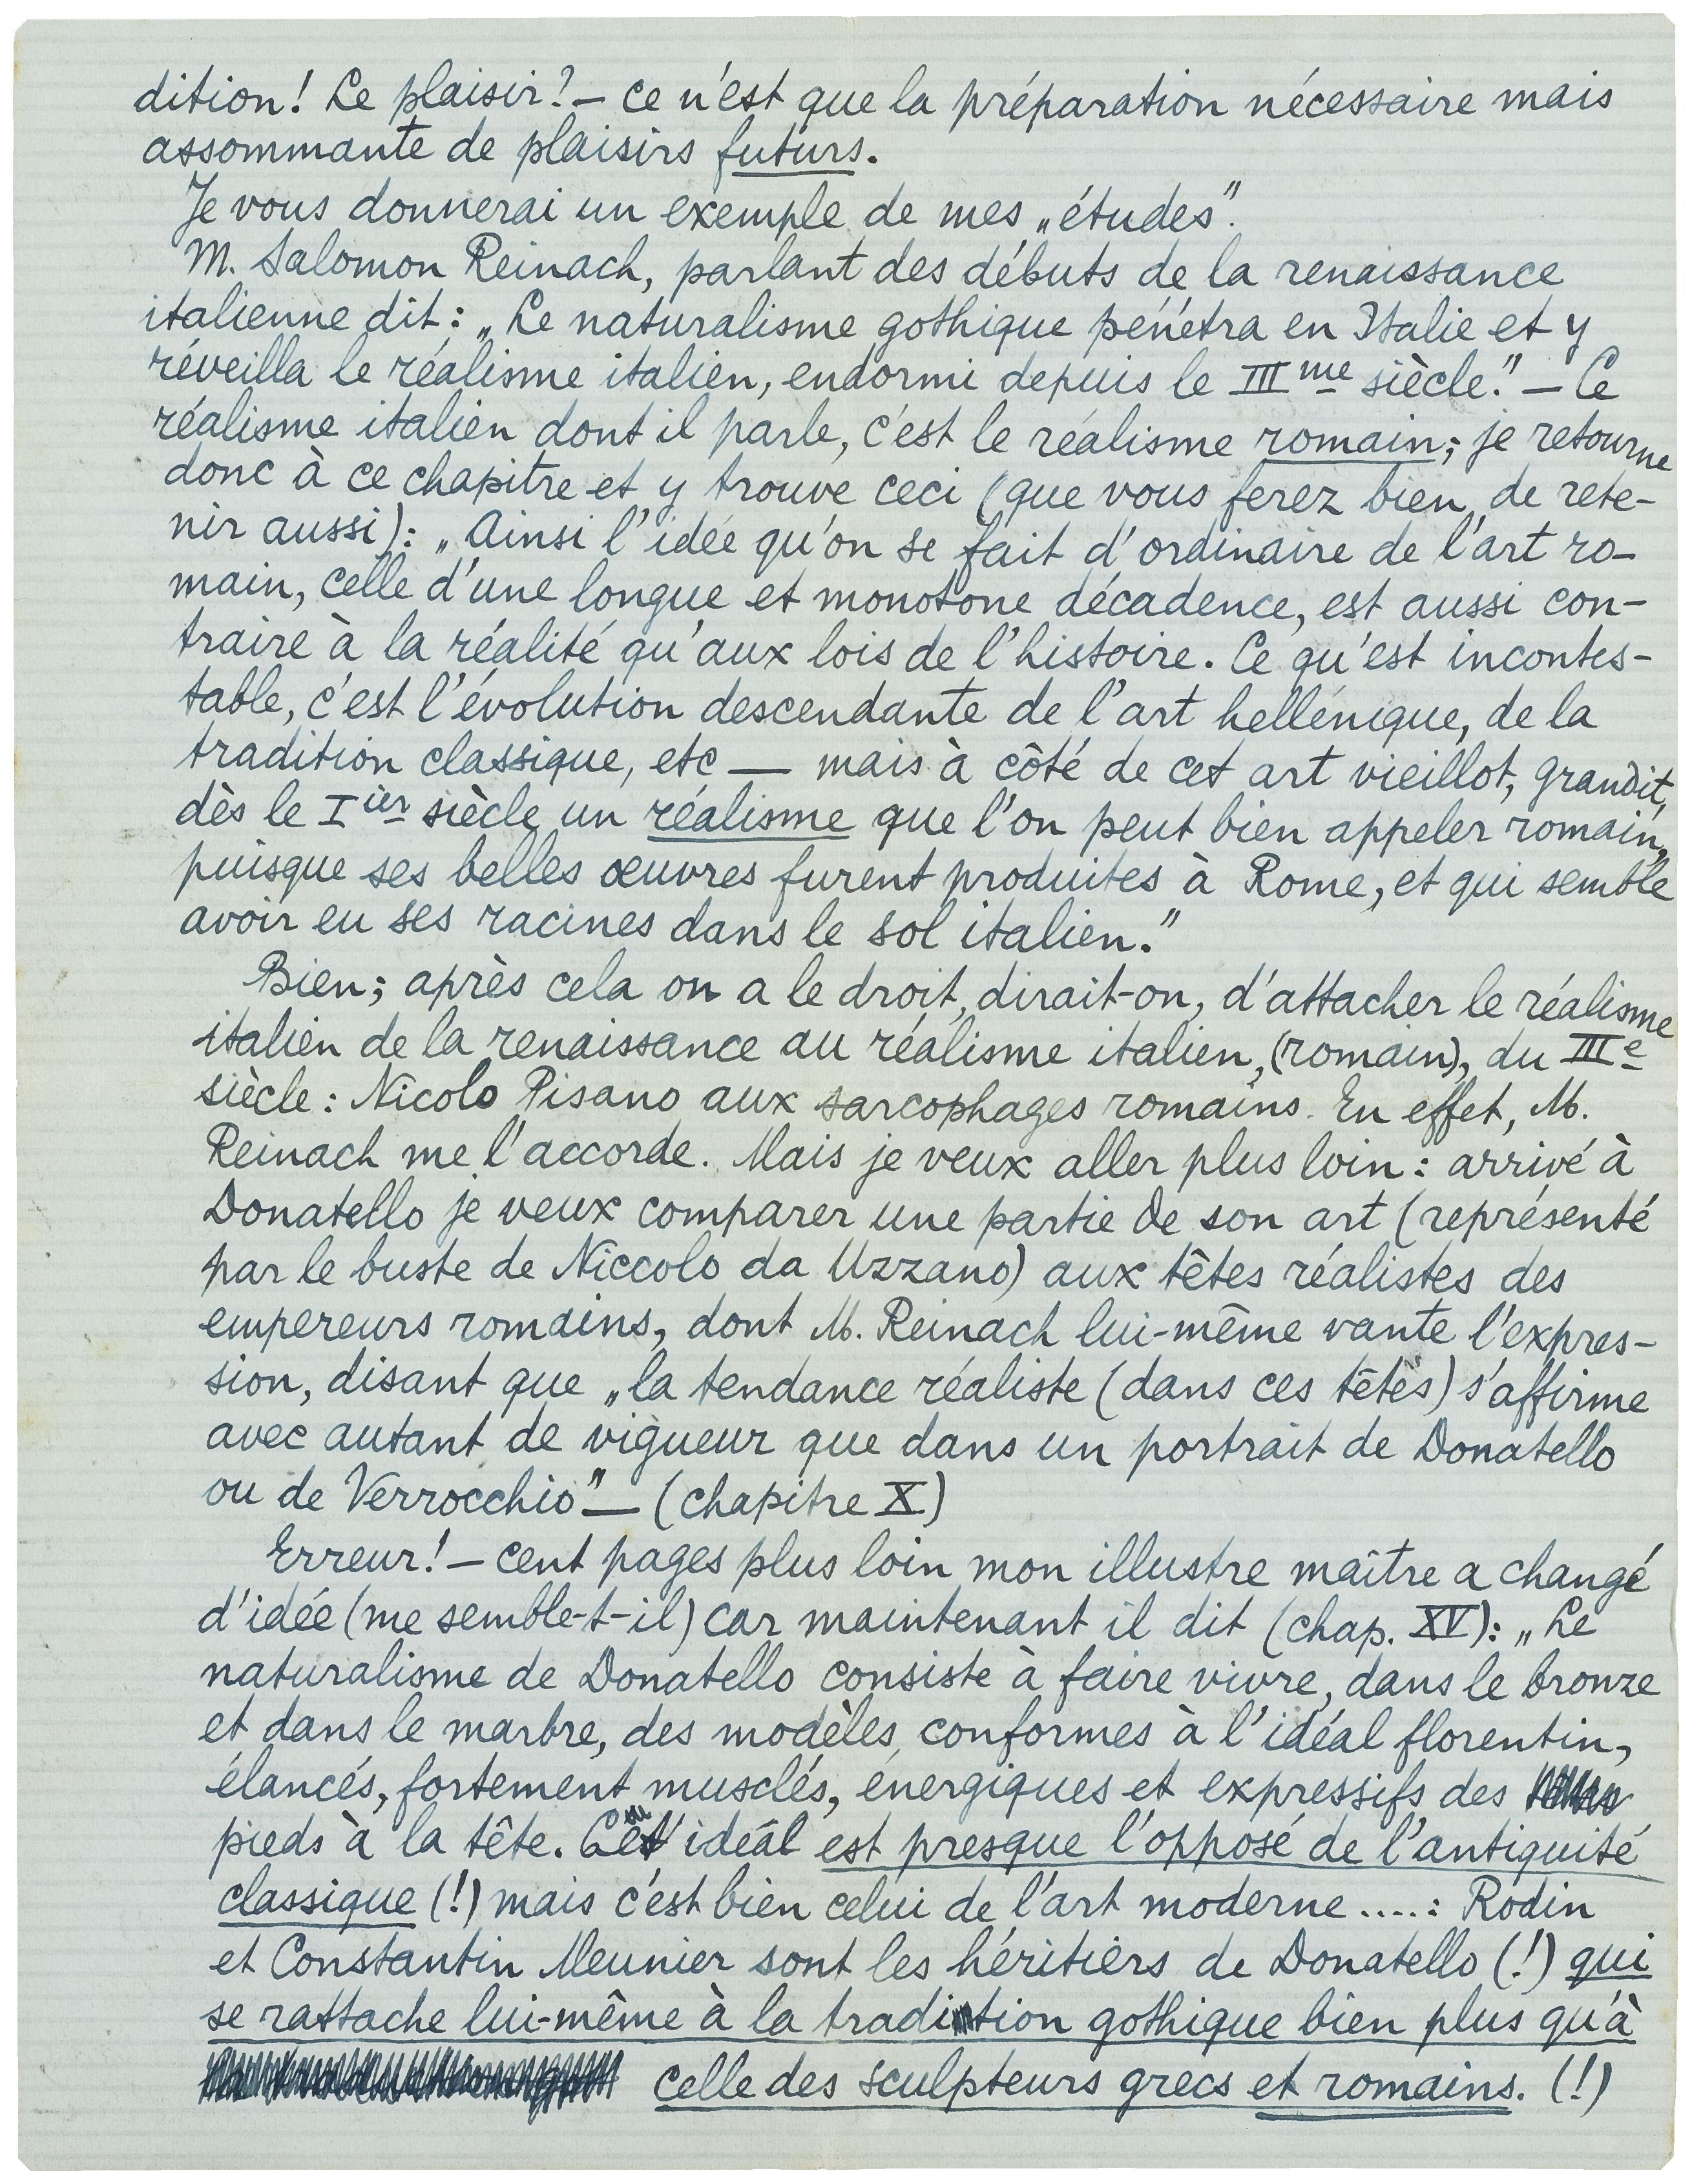 dition! Le plaisir? — ce n'est que la préparation nécessaire mais
assommante de plaisirs futurs.
Je vous donnerai un exemple de mes „études”.
M. Salomon Reinach, parlant des débuts de la renaissance
italienne dit: „Le naturalisme gothique pénétra en Italie et y
réveilla le réalisme italien, endormi depuis le IIIme siècle.” — Ce
réalisme italien dont il parle, c'est le réalisme romain; je retourne
donc à ce chapitre et y trouve ceci (que vous ferez bien de rete-
nir aussi): „Ainsi l'idée qu'on se fait d'ordinaire de l'art ro-
main, celle d'une longue et monotone décadence, est aussi con-
traire à la réalité qu'aux lois de l'histoire. Ce qu'est incontes-
table, c'est l'évolution descendante de l'art hellénique, de la
tradition classique, etc — mais à côté de cet art vieillot, grandit,
dès le Iier siècle un réalisme que l'on peut bien appeler romain,
puisque ses belles œuvres furent produites à Rome, et qui semble
avoir eu ses racines dans le sol italien.”
Bien; après cela on a le droit, dirait-on, d'attacher le réalisme
italien de la renaissance au réalisme italien, (romain), du IIIe
siècle: Nicolo Pisano aux sarcophages romains. En effet, M.
Reinach me l'accorde. Mais je veux aller plus loin: arrivé à
Donatello je veux comparer une partie de son art (représenté
par le buste de Niccolo da Uzzano) aux têtes réalistes des
empereurs romains, dont M. Reinach lui-même vante l'expres-
sion, disant que „la tendance réaliste (dans ces têtes) s'affirme
avec autant de vigueur que dans un portrait de Donatello
ou de Verrocchio” — (chapitre X)
Erreur! — cent pages plus loin mon illustre maître a changé
d'idée (me semble-t-il) car maintenant il dit (chap. XV): „Le
naturalisme de Donatello consiste à faire vivre, dans le bronze
et dans le marbre, des modèles conformes à l'idéal florentin,
élancés, fortement musclés, énergiques et expressifs des
pieds à la tête. Cet idéal est presque l'opposé de l'antiquité
classique (!) mais c'est bien celui de l'art moderne ....: Rodin
et Constantin Meunier sont les héritiers de Donatello (!) qui
se rattache lui-même à la tradition gothique bien plus qu'à
celle des sculpteurs grecs et romains. (!)